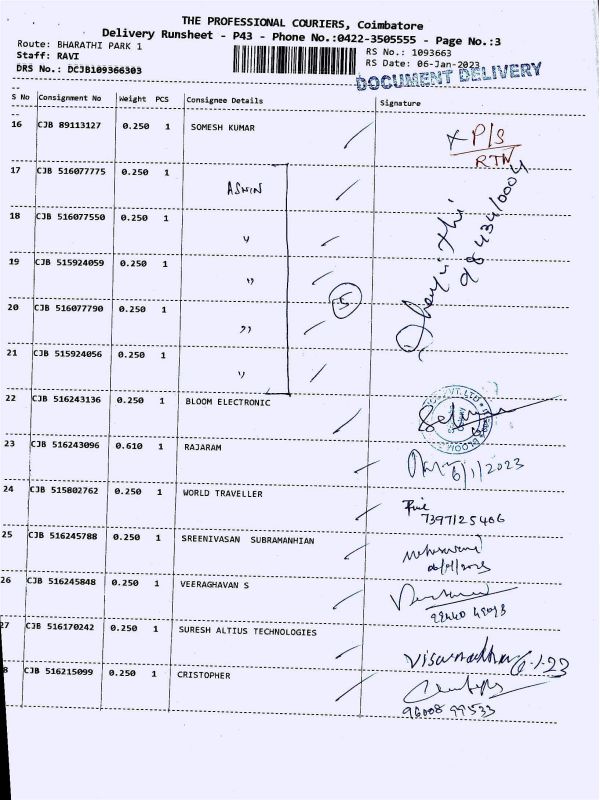 THE PROFESSIONAL COURIERS, Coimbatore
Delivery Runsheet - P43 - Phone No.:0422-3505555 - Page No.:3
Route: BHARATHI PARK 1
RS No.: 1093663
Staff: RAVI
RS Date: 06-Jan-2023
DRS No.: DCJB109366303
DOCUMENT DELIVERY
S No Consignment No Weight PCS Consignee Details Signature
16 CJB 89113127 0.250 1 SOMESH KUMAR X P/S
RTN
17 CJB 516077775 0.250 1 ASWIN
18 CJB 516077550 0.250 1 "
19 CJB 515924059 0.250 1 "
5
20 CJB 516077790 0.250 1 "
21 CJB 515924056 0.250 1 "
22 CJB 516243136 0.250 1 BLOOM ELECTRONIC
23 CJB 516243096 0.610 1 RAJARAM 6/1/2023
24 CJB 515802762 0.250 1 WORLD TRAVELLER
7397125406
25 CJB 516245788 0.250 1 SREENIVASAN SUBRAMANHIAN
06/01/2023
26 CJB 516245848 0.250 1 VEERAGHAVAN S
27 CJB 516170242 0.250 1 SURESH ALTIUS TECHNOLOGIES 6.1.23
8 CJB 516215099 0.250 1 CRISTOPHER
96008 99533